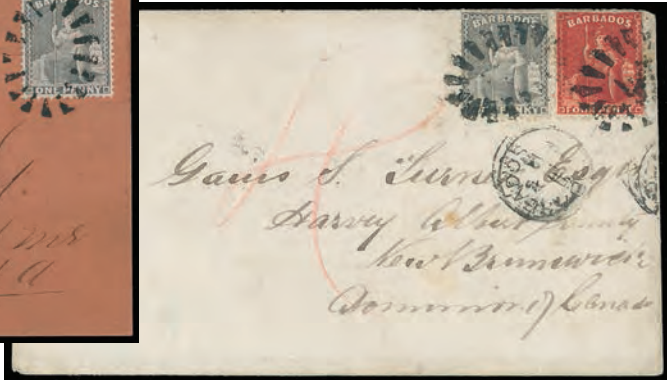 BARBADOS
ONE PENNY
BARBADOS
BARBADOS
ONE PENNY
BARBADOS
Gaius S. Turner Esqr
Harvey Albert County
New Brunswick
Dominion of Canada